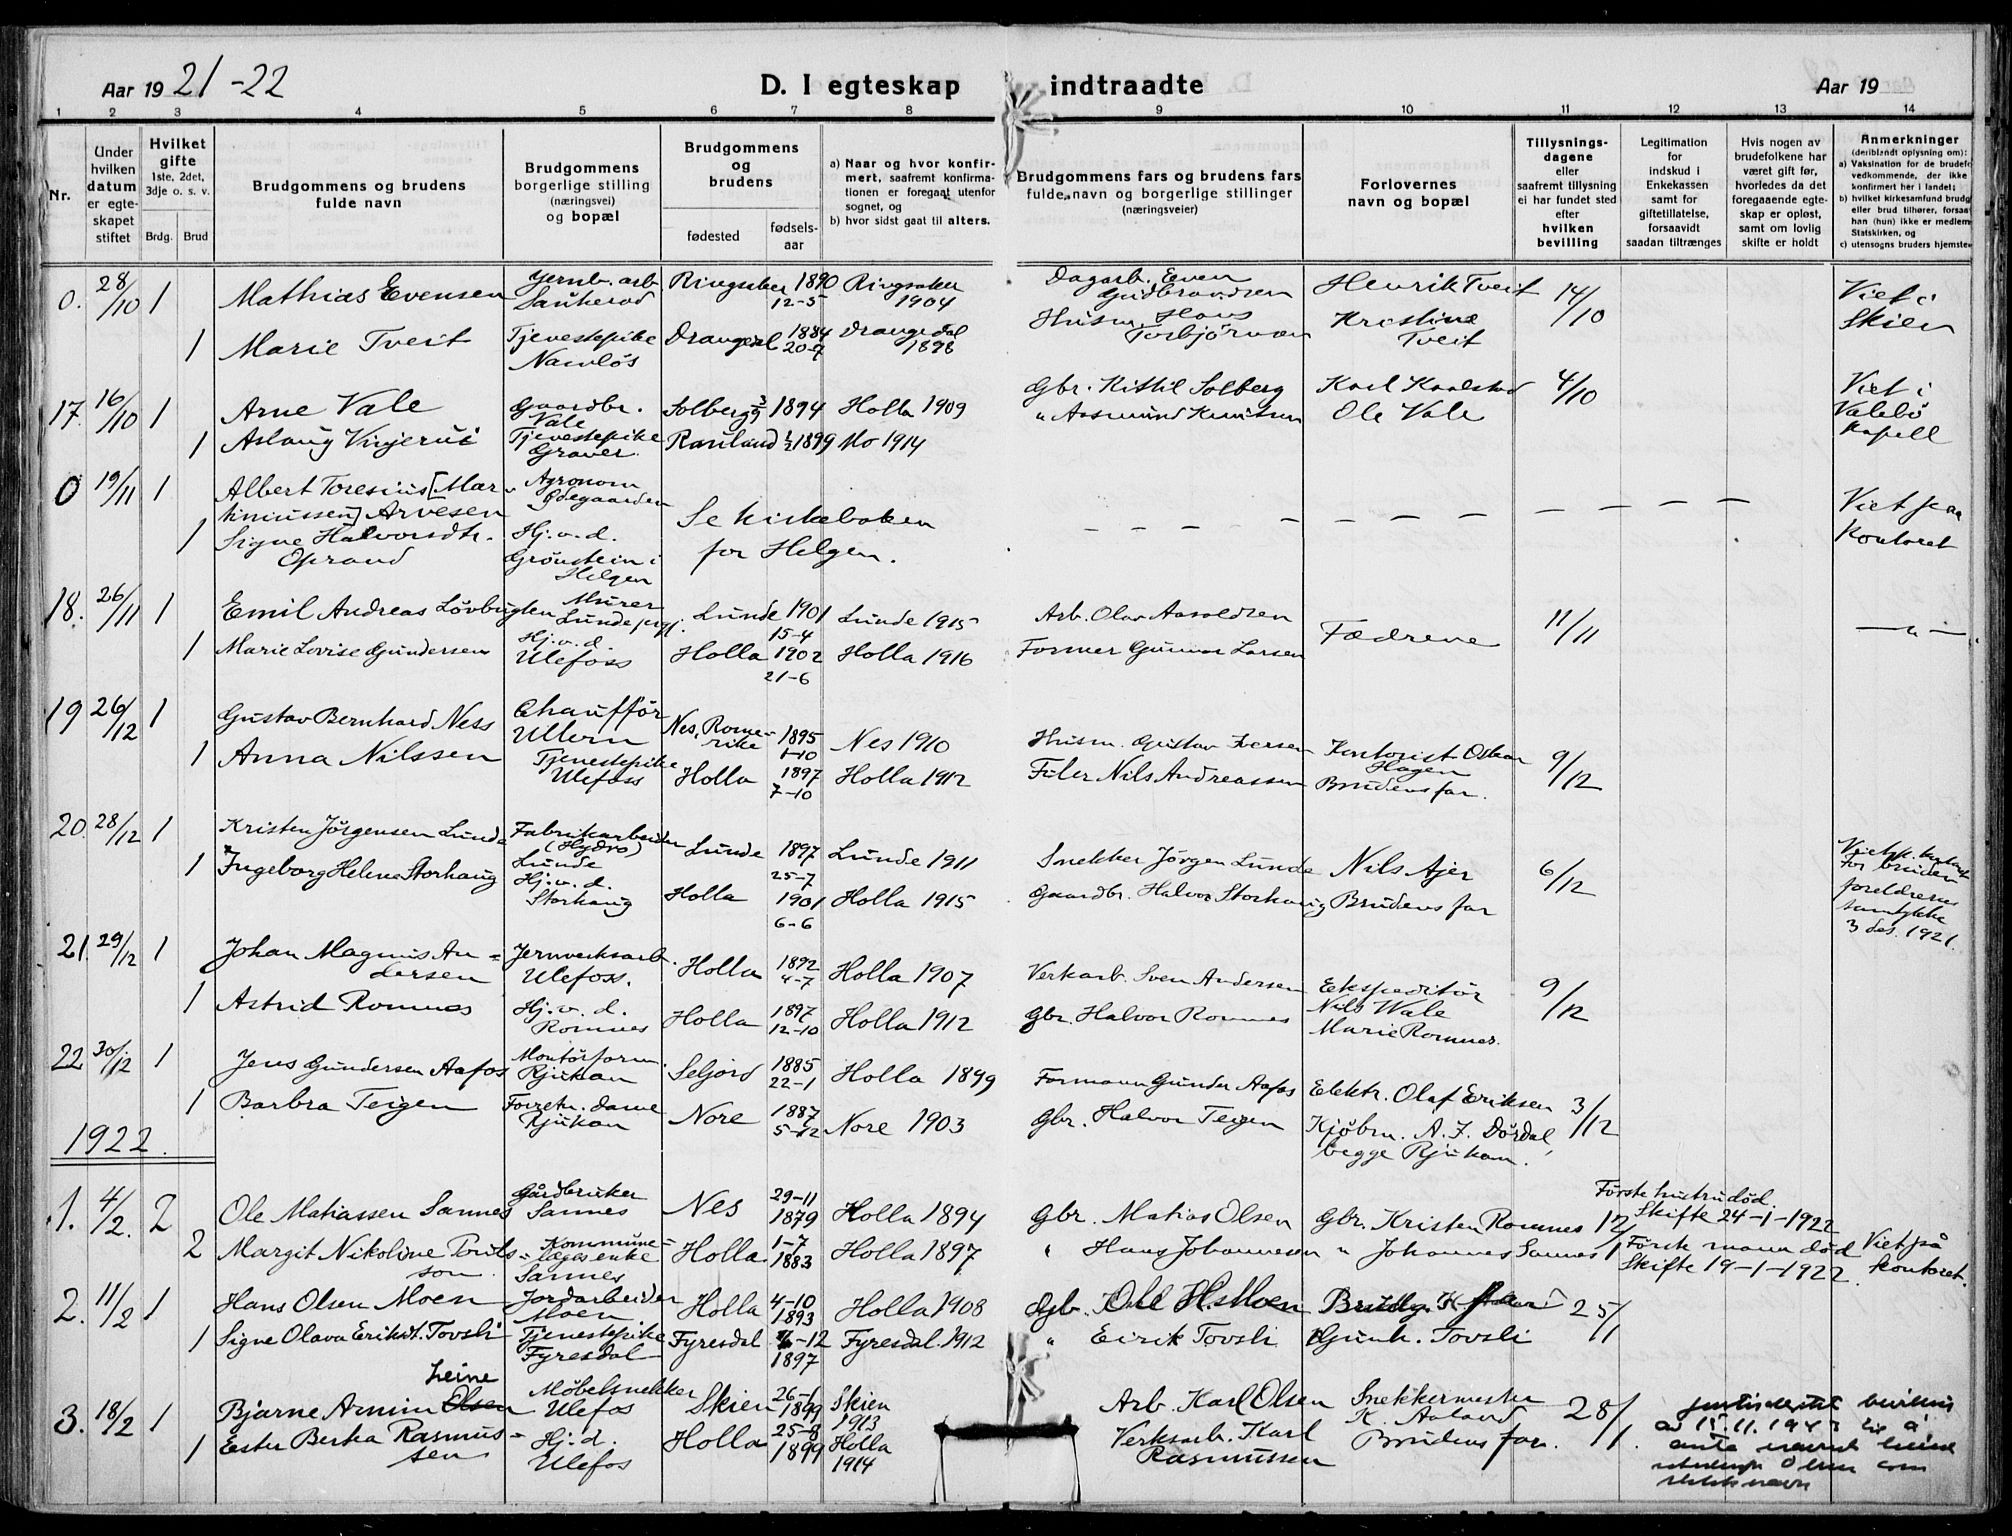 Aar 19 21-22
D. I egteskap indtraadte
Aar 19
1 2 3 4 5 6 7 8 9 10 11 12 13 14
Nr.
Under hvilken datum er egte-skapet stiftet
Hvilket gifte 1ste, 2det, 3dje o. s. v.
Brdg. Brud
Brudgommens og brudens fulde navn
Brudgommens borgerlige stilling (næringsvei) og bopæl
Brudgommens og brudens
fødested
fødsels-aar
a) Naar og hvor konfir-mert, saafremt konfirma-tionen er foregaat utenfor sognet, og
b) hvor sidst gaat til alters.
Brudgommens fars og brudens fars fulde navn og borgerlige stillinger (næringsveier)
Forlovernes navn og bopæl
Tillysnings-dagene eller saafremt tillysning ei har fundet sted efter hvilken bevilling
Legitimation for indskud i Enkekassen samt for giftetillatelse, forsaavidt saadan tiltrænges
Hvis nogen av brudefolkene har været gift før, hvorledes da det foregaaende egte-skap er opløst, samt om lovlig skifte er holdt
Anmerkninger
(deriblandt oplysning om):
a) Vaksination for de brudefo
vedkommende, der ikke
konfirmert her i landet;
b) hvilket kirkesamfund brudg
eller brud tilhører, forsaa
han (hun) ikke er medlem
Statskirken, og
c) utensogns bruders hjemste
0. 28/10 1 Mathias Evensen Jernb. arb. Sauherad Ringsaker 1890 12-5 Ringsaker 1904 Dagarb. Even Gudbrandsen Henrik Tveit 14/10 Viet i Skien
1 Marie Tveit Tjenestepike Namløs Drangedal 1884 20-7 Drangedal 1898 Husm. Hans Torbjørnsen Kristine Tveit
17. 16/10 1 Arne Vale Gaardbr. Vale Solberg 3/9 1894 Holla 1909 Gbr. Kittil Solberg Karl Kaalstad 4/10 Viet i Valebø kapell
1 Aslaug Vinjerui Tjenestepike Graver. Rauland 1899 Mo 1914 " Aasmund Knutsen Ole Vale
0 19/11 1 Albert Toresius [Mar-tiniussen] Arvesen Agronom Ødegaarden Se kirkeboken for Helgen. Viet paa kontoret
1 Signe Halvorsdtr. Oprand Hj.v.d. Grønstein i Helgen
18. 26/11 1 Emil Andreas Løvbugten Murer Lunde prgj. Lunde 1901 15-4 Lunde 1915 Arb. Olav Aasoldsen Fædrene 11/11 — " —
1 Marie Lovise Gundersen Hj.v.d. Ulefoss Holla 1902 21-6 Holla 1916 Former Gunnar Larsen
19 26/12 1 Gustav Bernhard Ness Chauffør Ullern Nes, Rome-rike 1895 1-10 Nes 1910 Husm. Gustav Iversen Kontorist Oskar Hagen 9/12
1 Anna Nilssen Tjenestepike Ulefoss Holla 1897 7-10 Holla 1912 Filer Nils Andreassen Brudens far.
20. 28/12 1 Kristen Jørgensen Lunde Fabrikarbeider (Hydro) Lunde Lunde 1897 25-7 Lunde 1911 Snekker Jørgen Lunde Nils Ajer 6/12 For bruden foreldrenes samtykke 3 des. 1921.
1 Ingeborg Helene Storhaug Hj.v.d. Storhaug Holla 1901 6-6 Holla 1915 Gaardbr. Halvor Storhaug Brudens far
21. 29/12 1 Johan Magnus An-dersen Jernverksarb. Ulefoss. Holla 1892 4-7 Holla 1907 Verkarb. Sven Andersen Ekspeditør Nils Wale 9/12
1 Astrid Romnes Hj.v.d. Romnes Holla 1897 12-10 Holla 1912 Gbr. Halvor Romnes Marie Romnes.
22 30/12 1 Jens Gundersen Aafos Montørform. Rjukan Seljord 1885 22-1 Holla 1899 Formann Gunder Aafos Elektr. Olaf Eriksen 3/12
1 Barbra Teigen Forretn. dame Rjukan Nore 1887 5-12 Nore 1903 Gbr. Halvor Teigen Kjøbm. A. F. Dørdal, begge Rjukan.
1922.
1. 4/2. 2 Ole Matiassen Sannes Gårdbruker Sannes Nes 29-11 1879 Holla 1894 Gbr. Matias Olsen Gbr. Kristen Romnes 12/1 Første hustru død. Skifte 24-1-1922
2 Margit Nikoline Pouls-son Kommune-læges enke Sannes Holla 1-7 1883 Holla 1897 " Hans Johannesen " Johannes Sannes Første mann død Skifte 19-1-1922. Viet på kontoret.
2. 11/2 1 Hans Olsen Moen Jordarbeider Moen Holla 4-10 1893 Holla 1908 Gb. Ole H. Moen 25/1
1 Signe Olava Eriksd. Tovsli Tjenestepike Fyresdal Fyresdal -12 1897 Fyresdal 1912 " Eirik Tovsli Gunh. Tovsli
3. 18/2 1 Bjarne Armin Olsen Leine Møbelsnekker Ulefos Skien 26-1 1899 Skien 1913 Arb. Karl Olsen Snekkermester K. Aaland 28/1.
1 Ester Berka Rasmus-sen Hj.d. Ulefos Holla 25-8 1899 Holla 1914 Verksarb. Karl Rasmussen Brudens far.
av 15.11.1947 til å anta navnet Leine istedenfor Olsen som slektsnavn